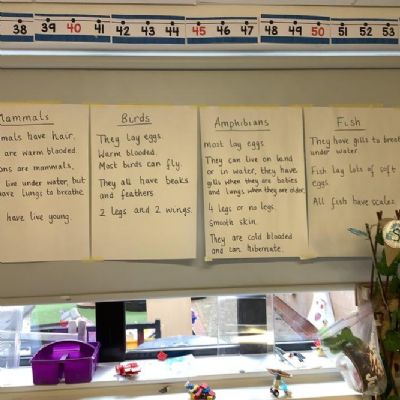 38 39 40 41 42 43 44 45 46 47 48 49 50 51 52 53
Mammals
mals have hair.
are warm blooded.
ons are mammals.
live under water, but
have lungs to breathe.
have live young.
Birds
They lay eggs.
Warm blooded.
Most birds can fly.
They all have beaks
and feathers.
2 legs and 2 wings.
Amphibians
most lay eggs.
They can live on land
or in water, they have
gills when they are babies
and lungs when they are older.
4 legs or no legs.
Smooth skin.
They are cold blooded
and can hibernate.
Fish
They have gills to breathe
under water.
Fish lay lots of soft
eggs.
All fish have scales.